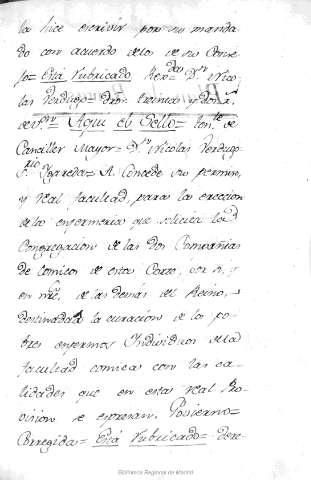 la hice escrivir por su manda
do con acuerdo delos de su Conse
jo= Está Rubricado Rexdo Dn Nico
las Verdugo= dros treinta y dos rs
de Von= Aqui el Sello= Tente de
Canciller Mayor= Dn Nicolas Verdugo
Srio Ygareda= A. Concede su permiso,
y real facultad, para la ereccion
dela enfermeria que solicita la
Congregacion de las dos Compañias
de comicos de esta Corte, por si, y
en nre, de las demás del Reino,
destinada à la curacion de los po-
bres enfermos Individuos dela
facultad comica con las ca-
lidades que en esta real Pro-
vision se expresan. Govierno=
Corregida= Está Rubricado= dere-
Biblioteca Regional de Madrid